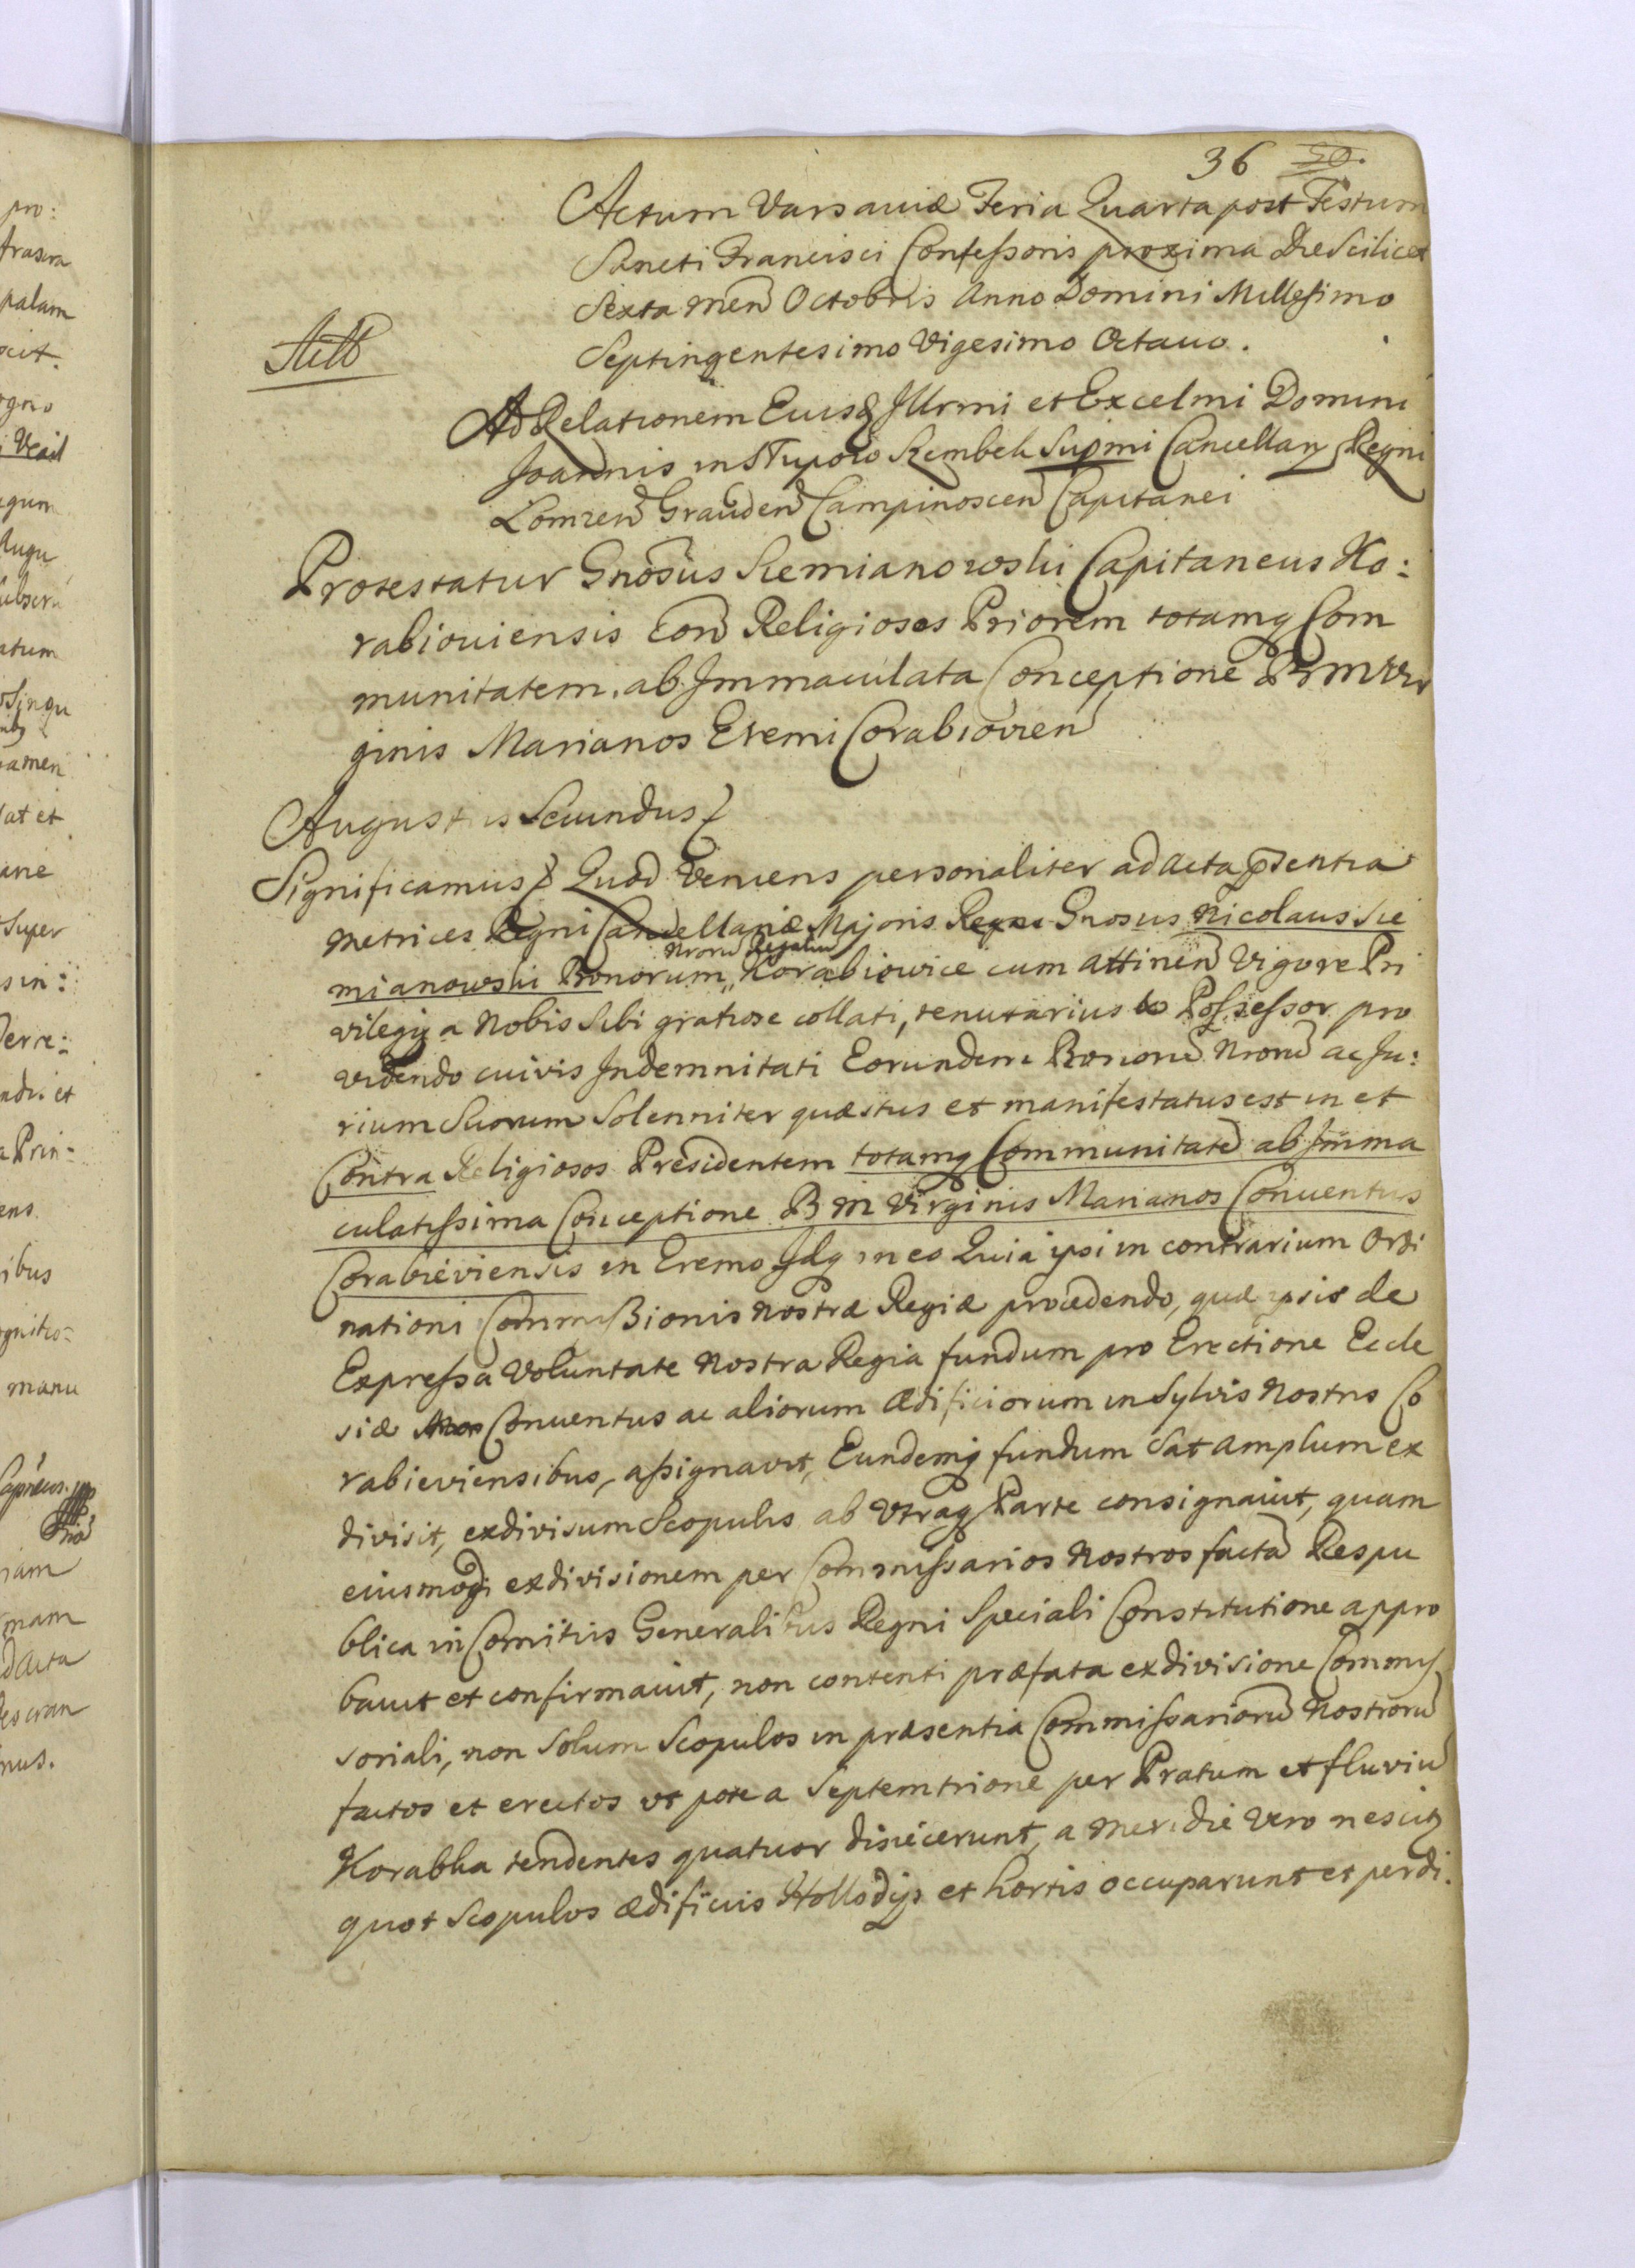 36
Actum Varsaviæ Feria Quarta post Festum
Sancti Francisci Confessoris proxima Die Scilicet
Sexta Men Octobris Anno Domini Millesimo
Septingentesimo Vigesimo Octavo.
Ad Relationem Eiusq Illrmi et Excelmi Domini
Joannis in Słupow Szembek Supmi Cancellarij Regni
Lomzen Grauden Campinoscen Capitanei
Protestatur Gnosus Siemianowski Capitaneus Ko:
rabioviensis Con Religiosos Priorem totamq Com
munitatem ab Immaculata Conceptione B M Vir
ginis Marianos Eremi Corabiovien
Augustus Secundus
Significamus Quod Veniens personaliter ad Acta pñsentia
Metrices Regni Cancellariæ Majoris Regni Gnosus Nicolaus Sie
Nroru Regaliu
mianowski Bonorum,, Korabiowice cum attinen Vigore Pri
vilegij a Nobis Sibi gratiose collati, tenutarius Possessor pro
videndo cuivis Indemnitati Eorundem Bonoru Nroru ac Ju:
rium Suorum Solenniter quæstus et manifestatus est in et
Contra Religiosos Præsidentem totamq Communitate ab Imma
culatissima Conceptione B M Virginis Marianos Conventus
Corabieviensis in Eremo Idq in eo Quia ipsi in contrarium Ordi
nationi Commissionis Nostræ Regiæ procedendo, quæ ipsis de
Expressa Voluntate Nostra Regia fundum pro Erectione Eccle
siæ Conventus ac aliorum Ædificiorum in Sylvis Nostris Co
rabieviensibus, assignavit, Eundemq fundum Sat amplum ex
divisit, exdivisum Scopulis ab Utraq Parte consignavit, quam
eiusmodi exdivisionem per Commissarios Nostros facta Respu
blica in Comitiis Generalibus Regni Speciali Constitutione appro
bavit et confirmavit, non contenti præfata exdivisione Commis
soriali, non Solum Scopulos in præsentia Commissarioru Nostroru
factos et erectos ut pote a Septemtrione per Pratum et fluviu
Korabka tendentes quatuor disiecerunt, a Meridie Vero nescitq
quot Scopulos ædificiis Hollodijs et hortis occuparunt et perdi: